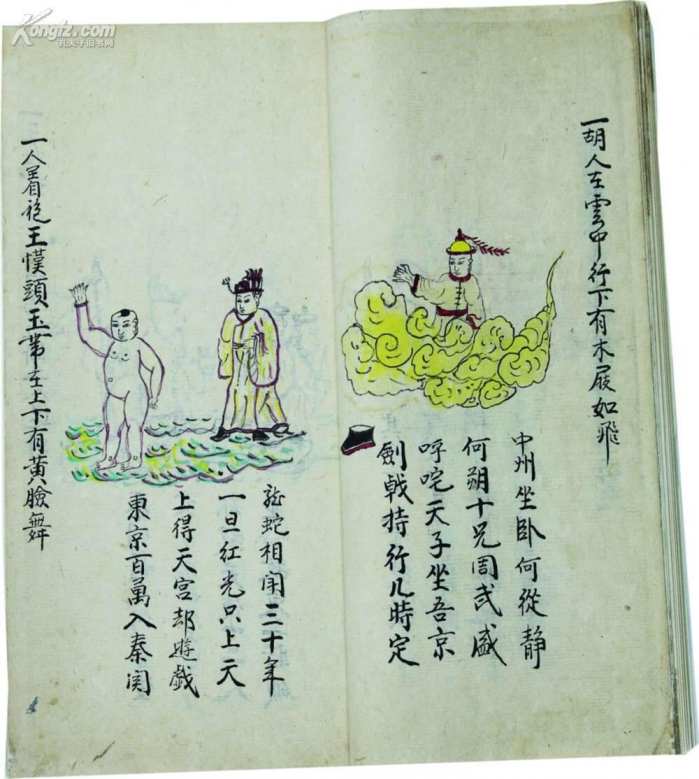 Kongfz.com
孔夫子旧书网
一胡人在雲中行下有木屐如飛
中州坐卧何從静
何朔十兄周武盛
呼咤天子坐吾京
劍戟持行几時定
一人着袍王幞頭玉帶在上下有黄臉舞
龍蛇相鬥三十年
一旦红光只上天
上得天宫却遊戲
東京百萬入秦関